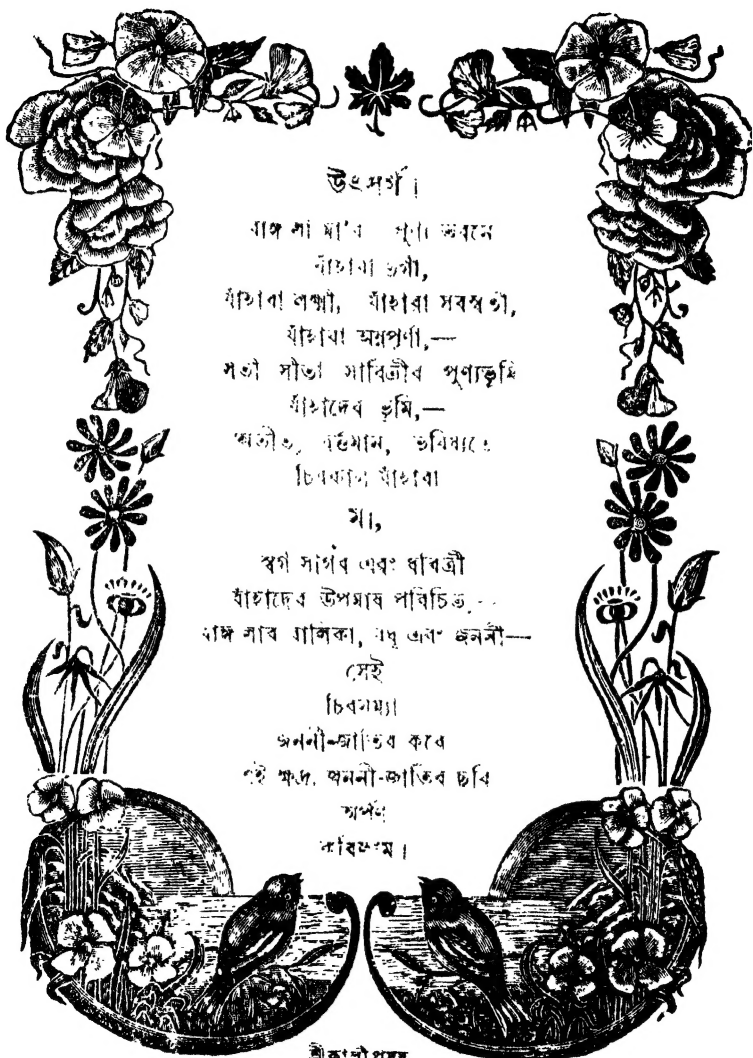 উৎসর্গ।
বাঙ্গলা মা'র পুণ্য ভবনে
যাঁহারা ভগ্নী,
যাঁহারা লক্ষ্মী, যাঁহারা সরস্বতী,
যাঁহারা অন্নপূর্ণা,—
সতী সীতা সাবিত্রীর পুণ্যভূমি
যাঁহাদের ভূমি,—
অতীত, বর্ত্তমান, ভবিষ্যতে
চিরকাল যাঁহারা
মা,
স্বর্গ সাগর এবং ধরিত্রী
যাঁহাদের উপমায় পরিচিত,—
বাঙ্গলার বালিকা, বধূ এবং জননী—
সেই
চিরনম্যা
জননী-জাতির করে
এই ক্ষুদ্র জননী-জাতির ছবি
অর্পণ
করিলাম।